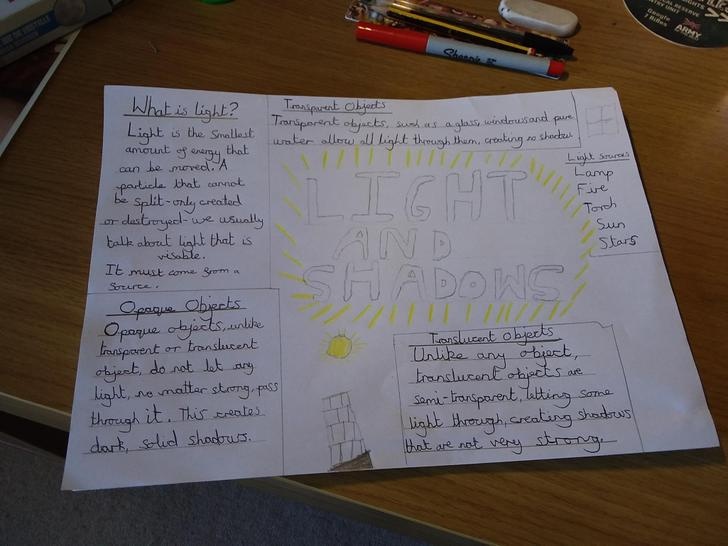 What is light?
Light is the smallest
amount of energy that
can be moved. A
particle that cannot
be split - only created
or destroyed - we usually
talk about light that is
visable.
It must come from a
source.
Transparent Objects
Transparent objects, such as a glass, windows and pure
water allow all light through them, creating no shadow.
Light Sources
Lamp
Fire
Torch
Sun
Stars
LIGHT
AND
SHADOWS
Opaque Objects
Opaque objects, unlike
transparent or translucent
object, do not let any
light, no matter strong, pass
through it. This creates
dark, solid shadows.
Translucent Objects
Unlike any object,
translucent objects are
semi-transparent, letting some
light through, creating shadows
that are not very strong.
Sharpie
ARMY